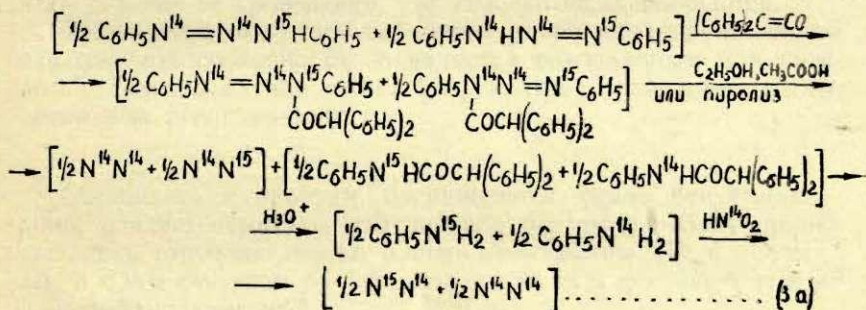 [½ C₆H₅N¹⁴=N¹⁴N¹⁵HC₆H₅ + ½ C₆H₅N¹⁴HN¹⁴=N¹⁵C₆H₅] (C₆H₅)₂C=CO →
→ [½ C₆H₅N¹⁴=N¹⁴N¹⁵C₆H₅ + ½C₆H₅N¹⁴N¹⁴=N¹⁵C₆H₅] C₂H₅OH, CH₃COOH или пиролиз →
COCH(C₆H₅)₂ COCH(C₆H₅)₂
→ [½N¹⁴N¹⁴ + ½N¹⁴N¹⁵] + [½C₆H₅N¹⁵HCOCH(C₆H₅)₂ + ½C₆H₅N¹⁴HCOCH(C₆H₅)₂] →
H₃O⁺ → [½ C₆H₅N¹⁵H₂ + ½ C₆H₅N¹⁴H₂] HN¹⁴O₂ →
→ [½ N¹⁵N¹⁴ + ½ N¹⁴N¹⁴] . . . . . . . . . . . (3а)